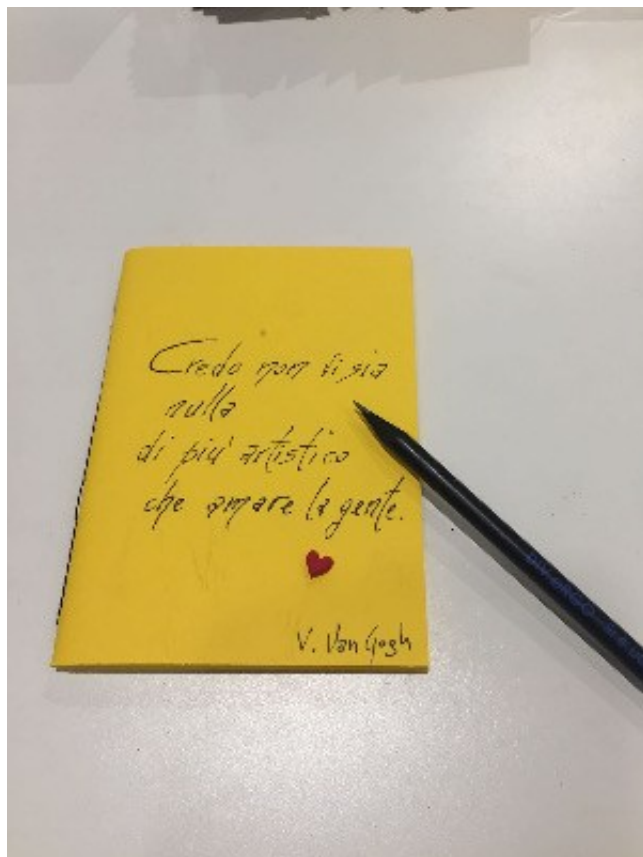 Credo non vi sia
nulla
di più artistico
che amare la gente.
V. Van Gogh